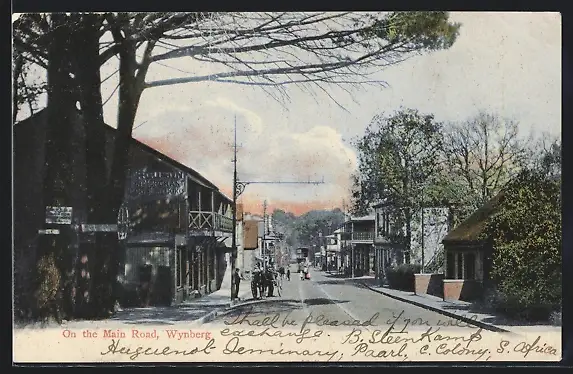 On the Main Road, Wynberg
Shall be very pleased if you will
exchange. B. Steenkamp.
Huguenot Seminary, Paarl, C. Colony, S. Africa